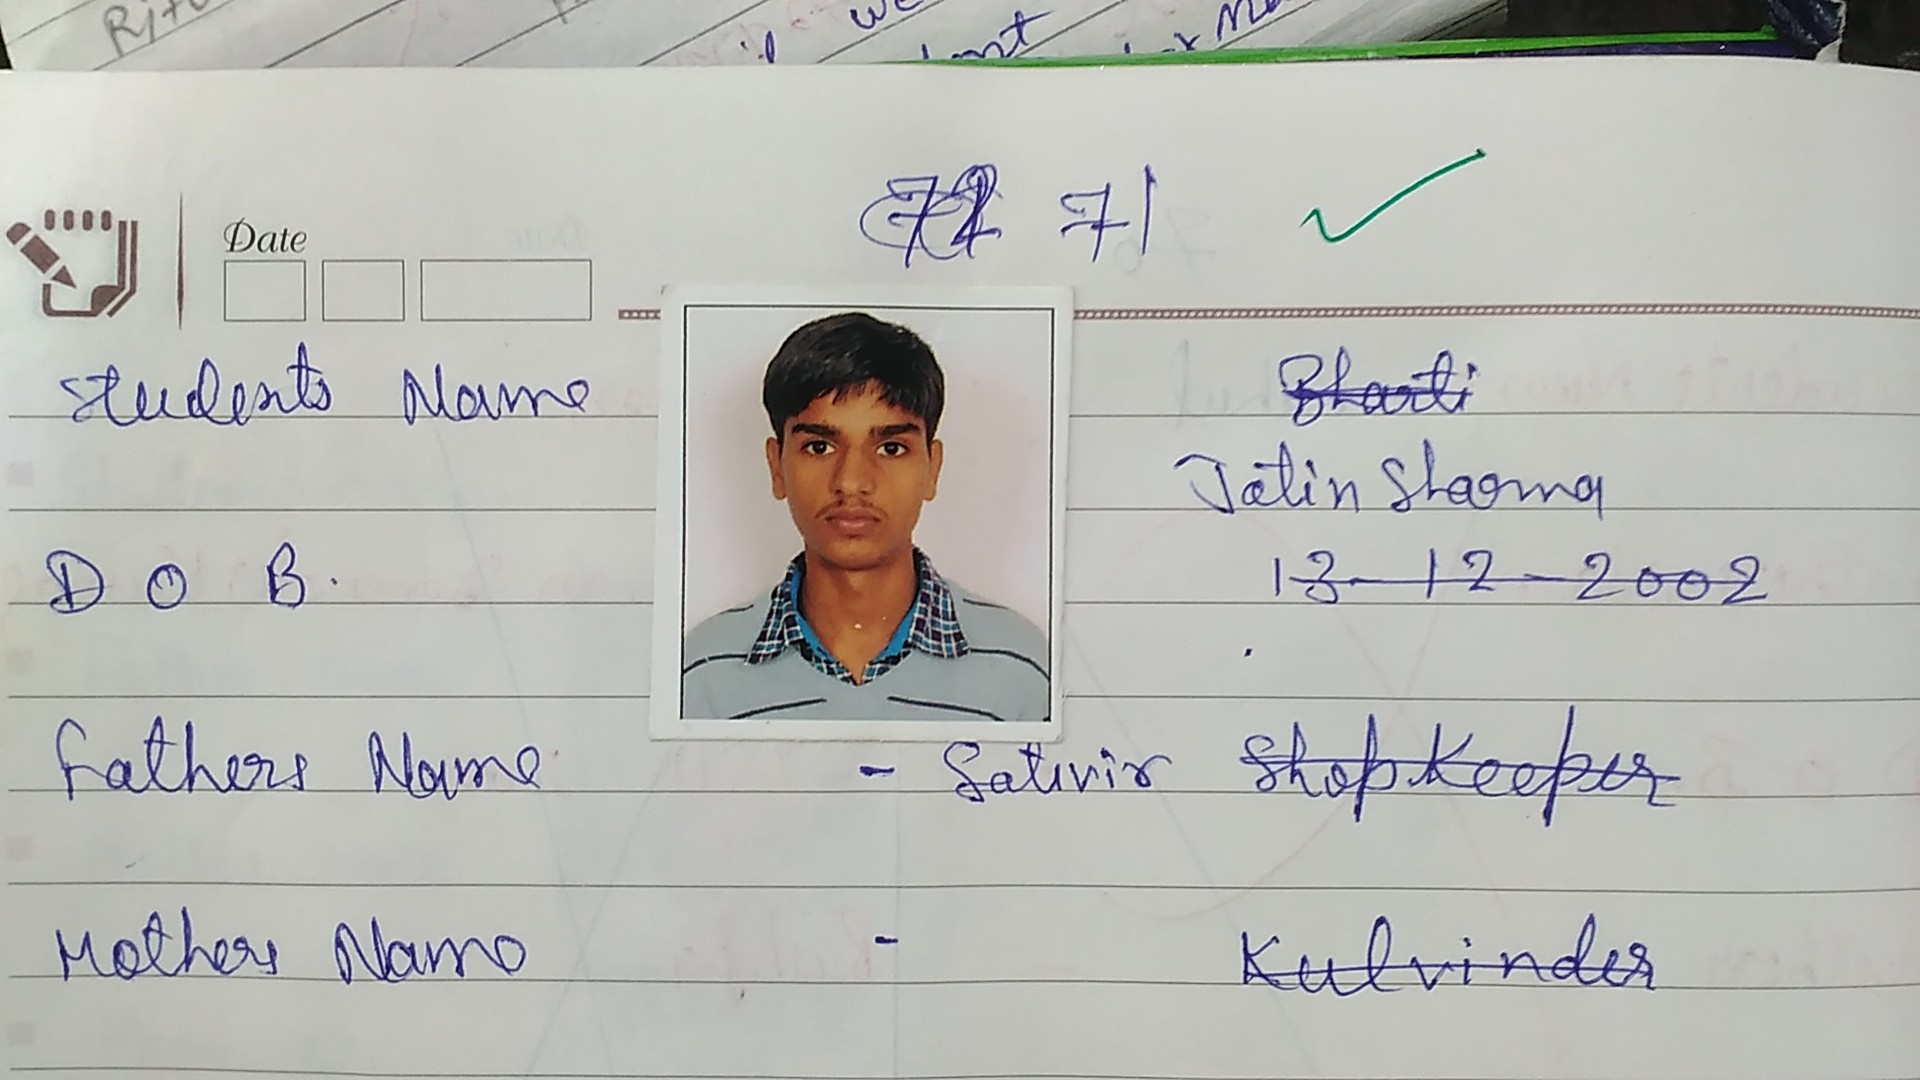 we
71
Date
Students Name Bharti
Jatin Sharma
D O B. 13-12-2002
Fathers Name - Sativir Shopkeeper
Mothers Name - Kulvinder